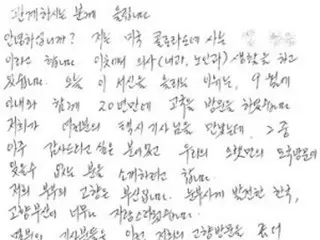 관계하시는 분께 올립니다
안녕하십니까? 저는 미국 콜로라도에 사는
이라고 합니다 이곳에서 의사(내과, 노인과) 생활을 하고
있습니다. 오늘 이 서신을 올리는 이유는, 9월에
아내와 함께 20년만에 고국을 방문을 하였습니다
저희가 여러분의 택시 기사님을 만났는데, 그중
아주 감사드리고 싶은 분이 있고 우리의 모국방문에
잊을수 없는 분을 소개하려고 합니다.
저희 부부의 고향은 부산입니다. 눈부시게 발전한 한국,
고향 부산이 너무나 자랑스러웠습니다.
기사분들은 저희의 고향방문을